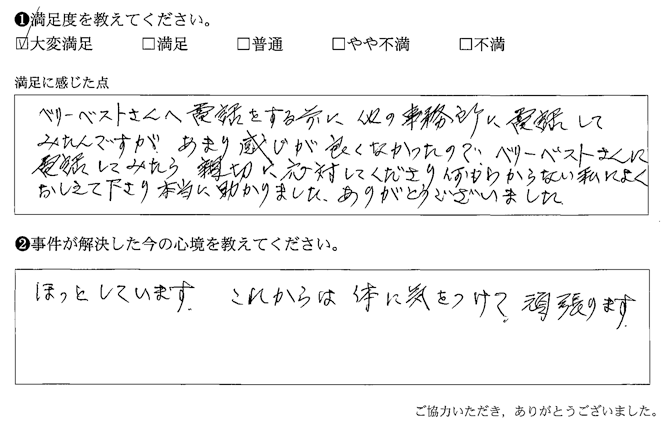 ❶満足度を教えてください。
☑大変満足 □満足 □普通 □やや不満 □不満
満足に感じた点
ベリーベストさんへ電話をする前に 他の事務所に電話して
みたんですが あまり感じが良くなかったので、ベリーベストさんに
電話してみたら 親切に応対してくださり何もわからない私によく
おしえて下さり本当に助かりました、ありがとうございました
❷事件が解決した今の心境を教えてください。
ほっとしています。 これからは 体に気をつけて、頑張ります。
ご協力いただき，ありがとうございました。